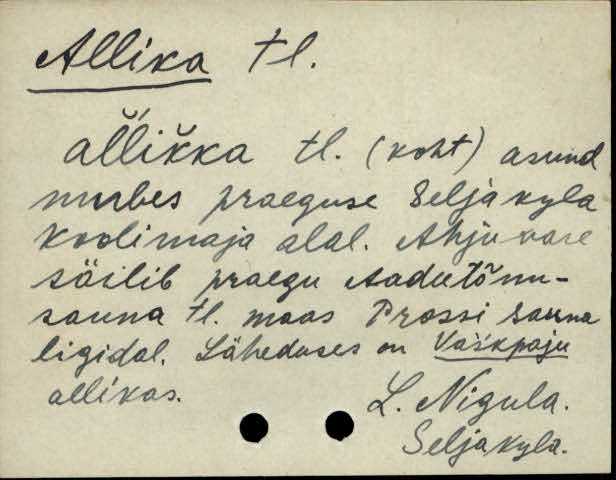 Allika tl.
aľľikka tl. (koht) asund
nurbes praeguse Seljakyla
koolimaja alal. Ahjuvare
säilib praegu Aadutõnu-
sauna tl. maas Prossi sauna
ligidal. Läheduses on Vaśkpaju
allikas.
L. Nigula.
Seljakyla.